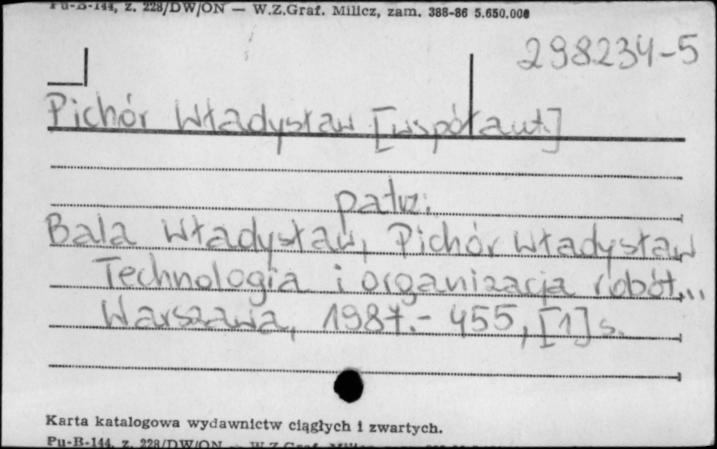 Pu-B-144, z. 228/DW/ON — W.Z.Graf. Milicz, zam. 388-86 5.650.000
298234-5
Pichór Władysław [współaut.]
patrz:
Bala Władysław, Pichór Władysław
Technologia i organizacja robót...
Warszawa, 1987.- 455, [1] s.
Karta katalogowa wydawnictw ciągłych i zwartych.
Pu-B-144, z. 228/DW/ON — W.Z.Graf. Milicz